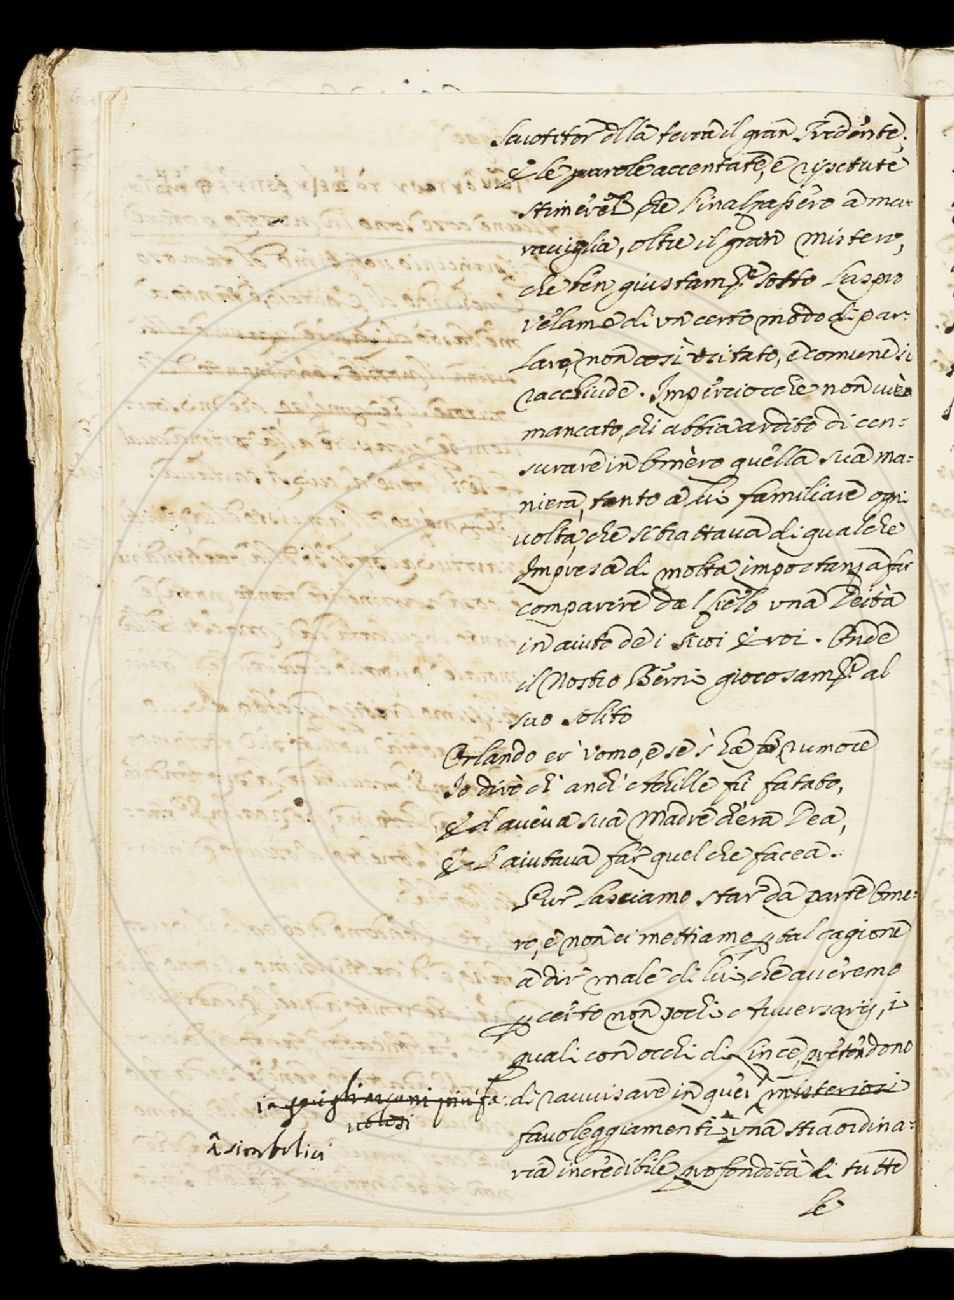 il gran Tridente,
E le parole accentate, e ripetute
stimerei che s'inalzassero a ma-
raviglia, oltre il gran mistero,
che ben giustam.te sotto l'aspro
velame di un certo modo di par-
lare, non così usitato, e comune si
racchiude. Imperciocche non vi è
mancato, chi abbia ardito di cen-
surare in Omero quella sua ma-
niera, tanto a lui familiare ogni
volta, che si trattava di qualche
Impresa di molta importanza far
comparire dal Cielo una Deità
in aiuto de i suoi Eroi. Onde
il Nostro Berni giocosam.te al
suo solito
Orlando er' uomo, e se s' ha far rumore
Io dirò ch' anch' Achille fù fatato,
Et aveva sua Madre ch'era Dea,
E l'aiutava far quel che facea.
Pur lasciamo star da parte Ome-
ro, e non ci mettiamo p tal cagione
a dir male di lui, che averemo
p certo non pochi Avversarij, i
quali con occhi di Lince, pretendono
di ravvisare in quei misteriosi
favoleggiamenti una straordina-
ria incredibile profondità di tutte
le
simbolici